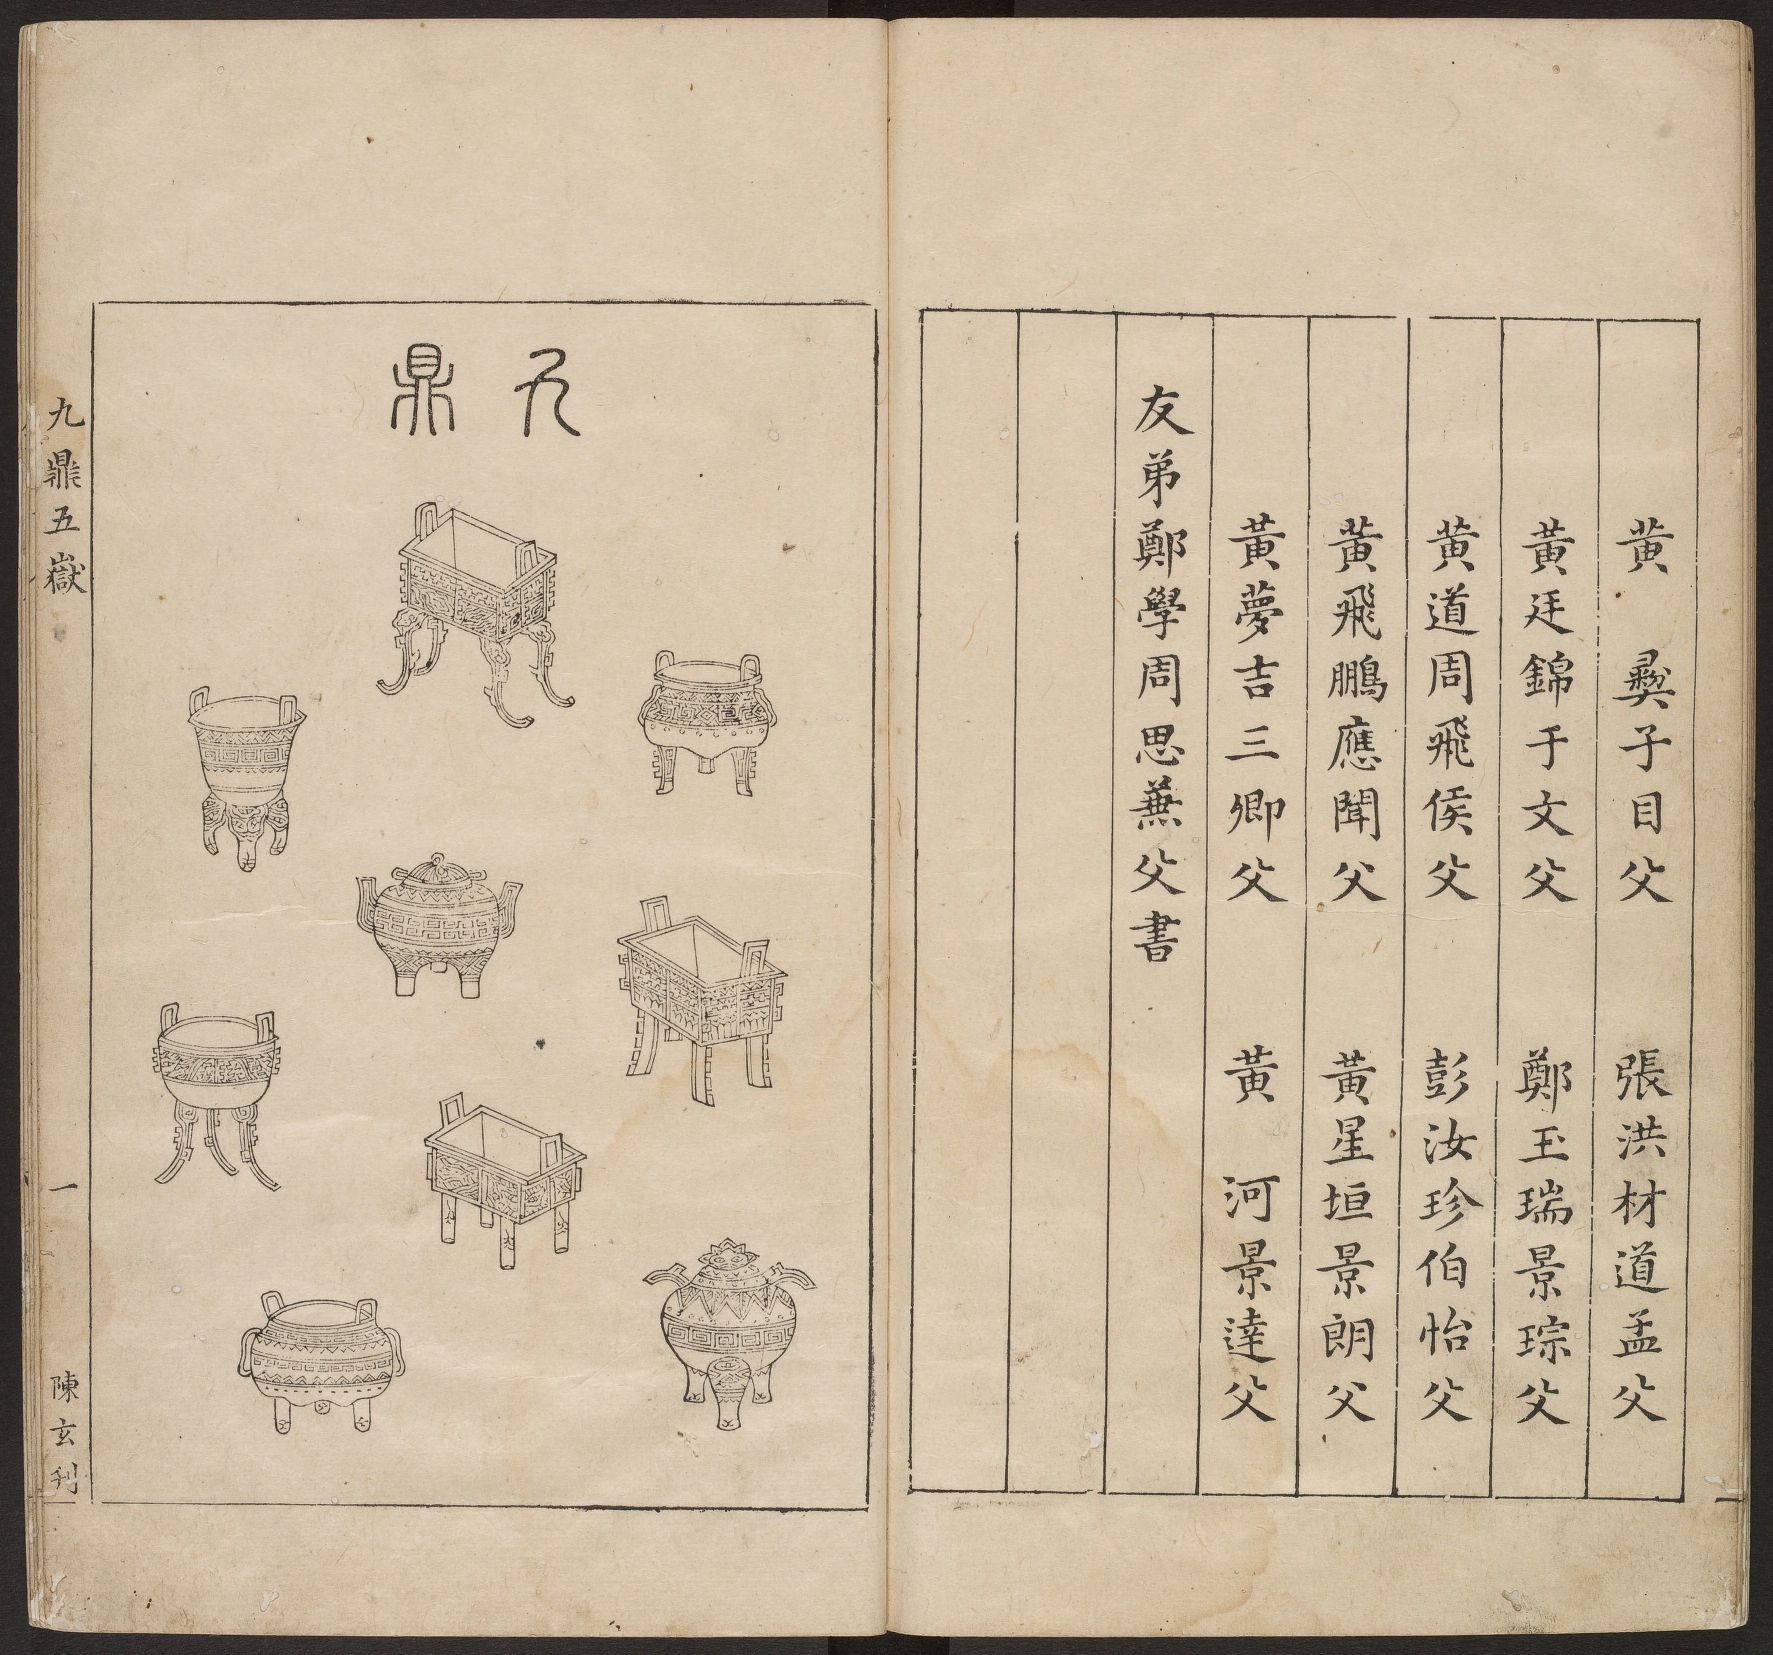 黄　彝子目父　張洪材道孟父
黄廷錦于文父　鄭玉瑞景琮父
黄道周飛侯父　彭汝珍伯怡父
黄飛鵬應聞父　黄星垣景朗父
黄夢吉三卿父　黄　河景達父
友弟鄭學周思蕪父書
九鼎
九鼎五嶽
一
陳玄刋